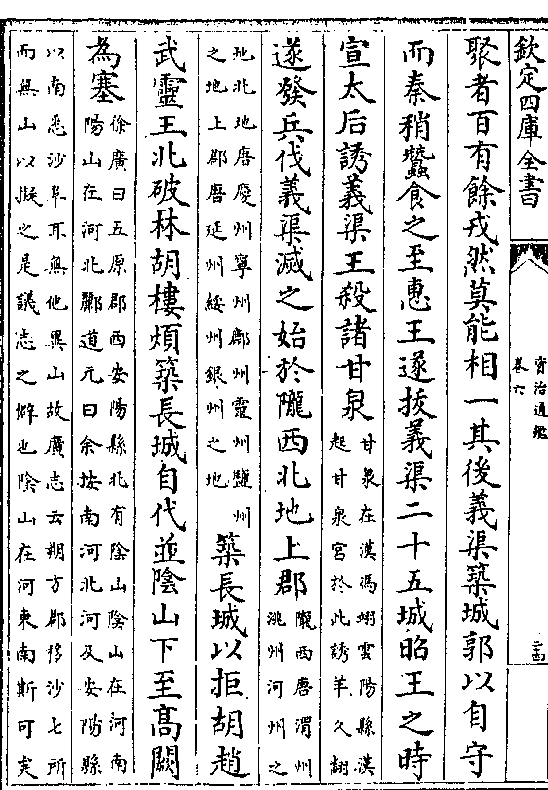 欽定四庫全書
資治通鑑
卷六
聚者百有餘戎然莫能相一其後義渠築城郭以自守
而秦稍蠶食之至惠王遂拔義渠二十五城昭王之時
宣太后誘義渠王殺諸甘泉
甘泉在漢馮翊雲陽縣漢
起甘泉宮於此誘羊久翻
遂發兵伐義渠滅之始於隴西北地上郡
隴西唐渭州
洮州河州之
地北地唐慶州寧州鄜州靈州鹽州
之地上郡唐延州綏州銀州之地
築長城以拒胡趙
武靈王北破林胡樓煩築長城自代並陰山下至高闕
為塞
徐廣曰五原郡西安陽縣北有陰山陰山在河南
陽山在河北酈道元曰余按南河北河及安陽縣
以南悉沙阜耳無他異山故廣志云朔方郡移沙七所
而無山以擬之是議志之僻也陰山在河東南斯可矣